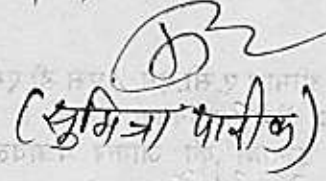 (सुमित्रा पारीक)